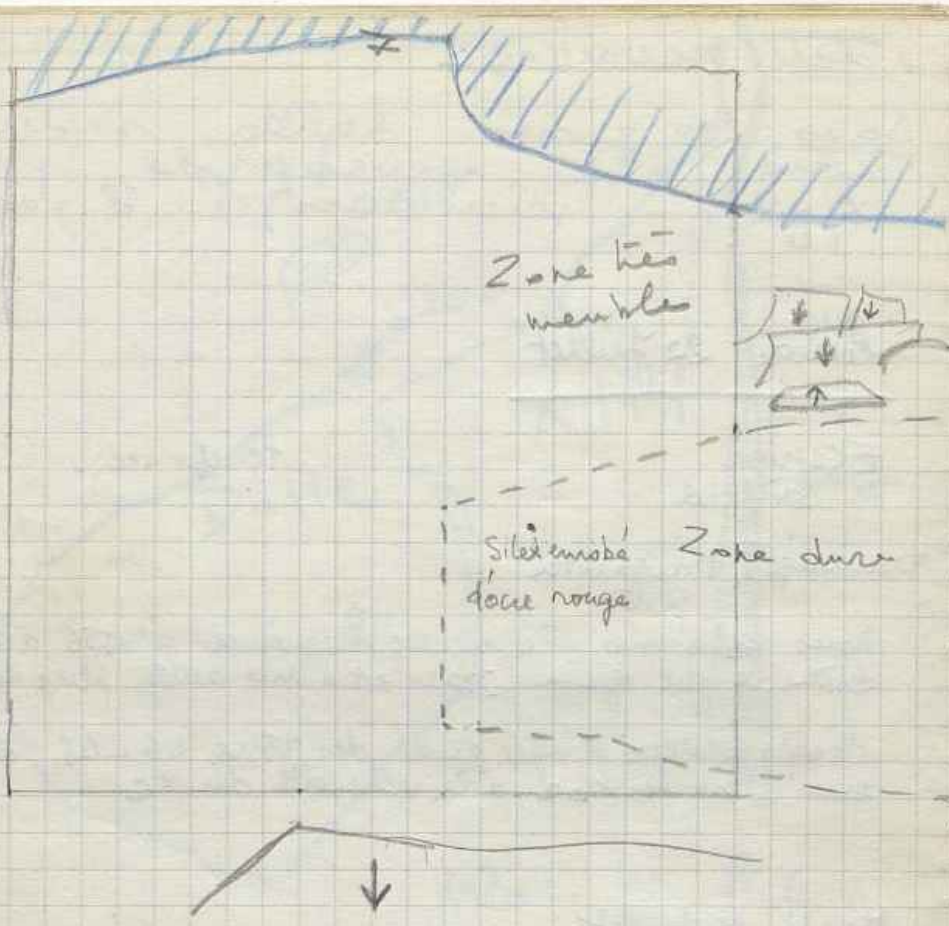 Zone très
meuble
Silex enrobé
d'ocre rouge
Zone dure